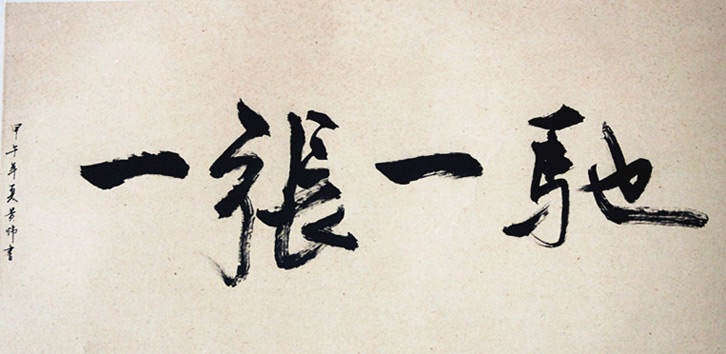 一張一馳
甲午年夏書